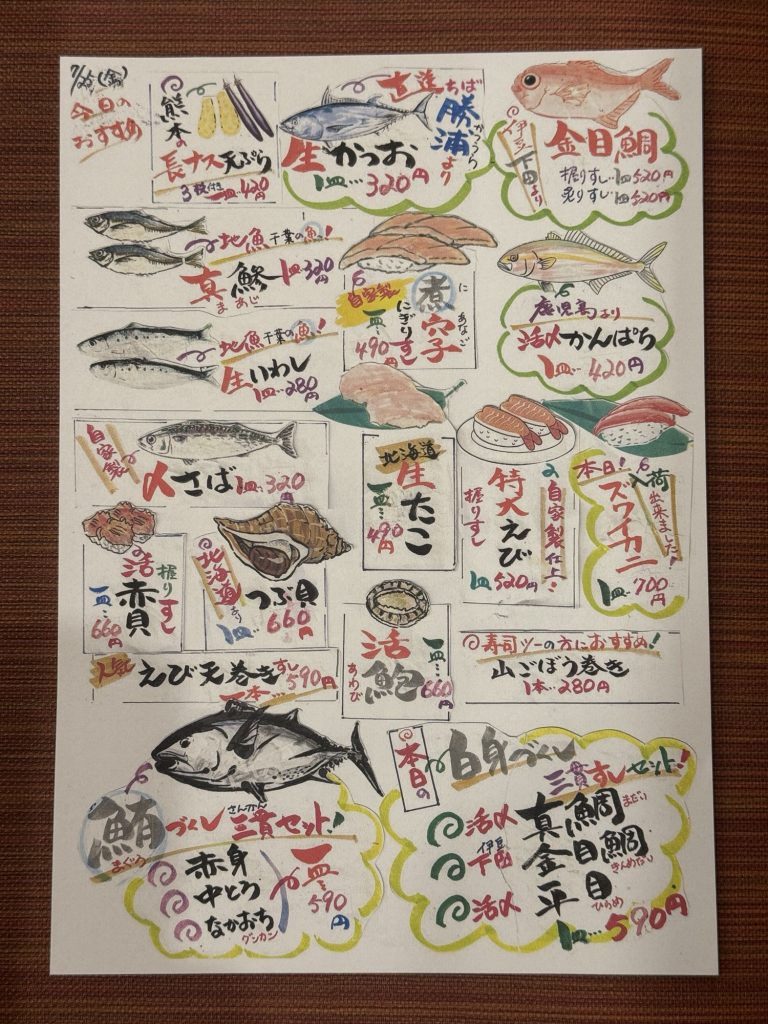 7/25(金)
今日の
おすすめ
熊本の
長ナス天ぷら
3枚付き 一皿…420円
直送ちば
勝浦より
かつうら
生かつお
1皿…320円
伊豆下田より
金目鯛
握りすし…1皿520円
炙りすし…1皿520円
地魚千葉の魚!
真鯵 1皿320円
まあじ
地魚千葉の魚!
生いわし
1皿…280円
自家製
煮穴子
に あなご
にぎりすし
一皿…490円
鹿児島より
活〆かんぱち
1皿…420円
自家製
〆さば 1皿…320円
北海道
生たこ
一皿…490円
自家製仕上!
特大えび
握りすし
1皿520円
本日!
入荷出来ました!
ズワイカニ
1皿…700円
握りすし
活赤貝
一皿…660円
北海道より
つぶ貝
1皿…660円
活鮑
あわび
一皿…660円
人気
えび天巻きすし590円
一本…
寿司ツーの方におすすめ!
山ごぼう巻き
1本…280円
鮪づくし三貫セット!
まぐろ さんかん
赤身
中とろ
なかおち
グンカン
一皿…590円
本日の
白身づくし
三貫すしセット!
活〆 真鯛 まだい
伊豆下田 金目鯛 きんめだい
活〆 平目 ひらめ
1皿…590円